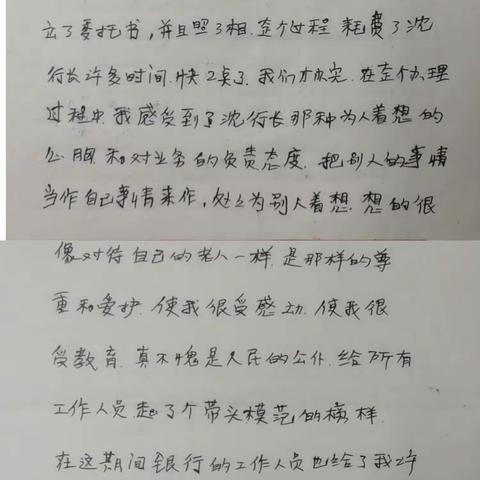 立了委托书，并且照了相.整个过程 耗费了沈
行长许多时间.快2点了.我们才办完.在整个办理
过程中.我感受到了沈行长那种为人着想的
心胸和对业务的负责态度.把别人的事情
当作自己事情来作，处处为别人着想.想的很
像对待自己的老人一样.是那样的尊
重和爱护.使我很受感动.使我很
受教育.真不愧是人民的公仆.给所有
工作人员.起了个带头模范的榜样.
在这期间银行的工作人员也给了我许